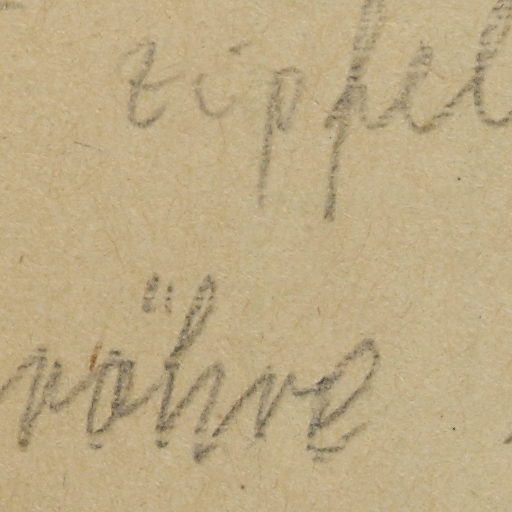 zipfel
röhre